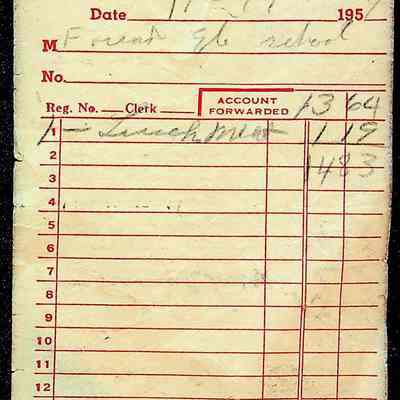 Date 195
M Forest Glo school
No.
Reg. No. Clerk ACCOUNT FORWARDED 13 64
1 1 - Lunch Meat 1 19
2
3 14 83
4
5
6
7
8
9
10
11
12